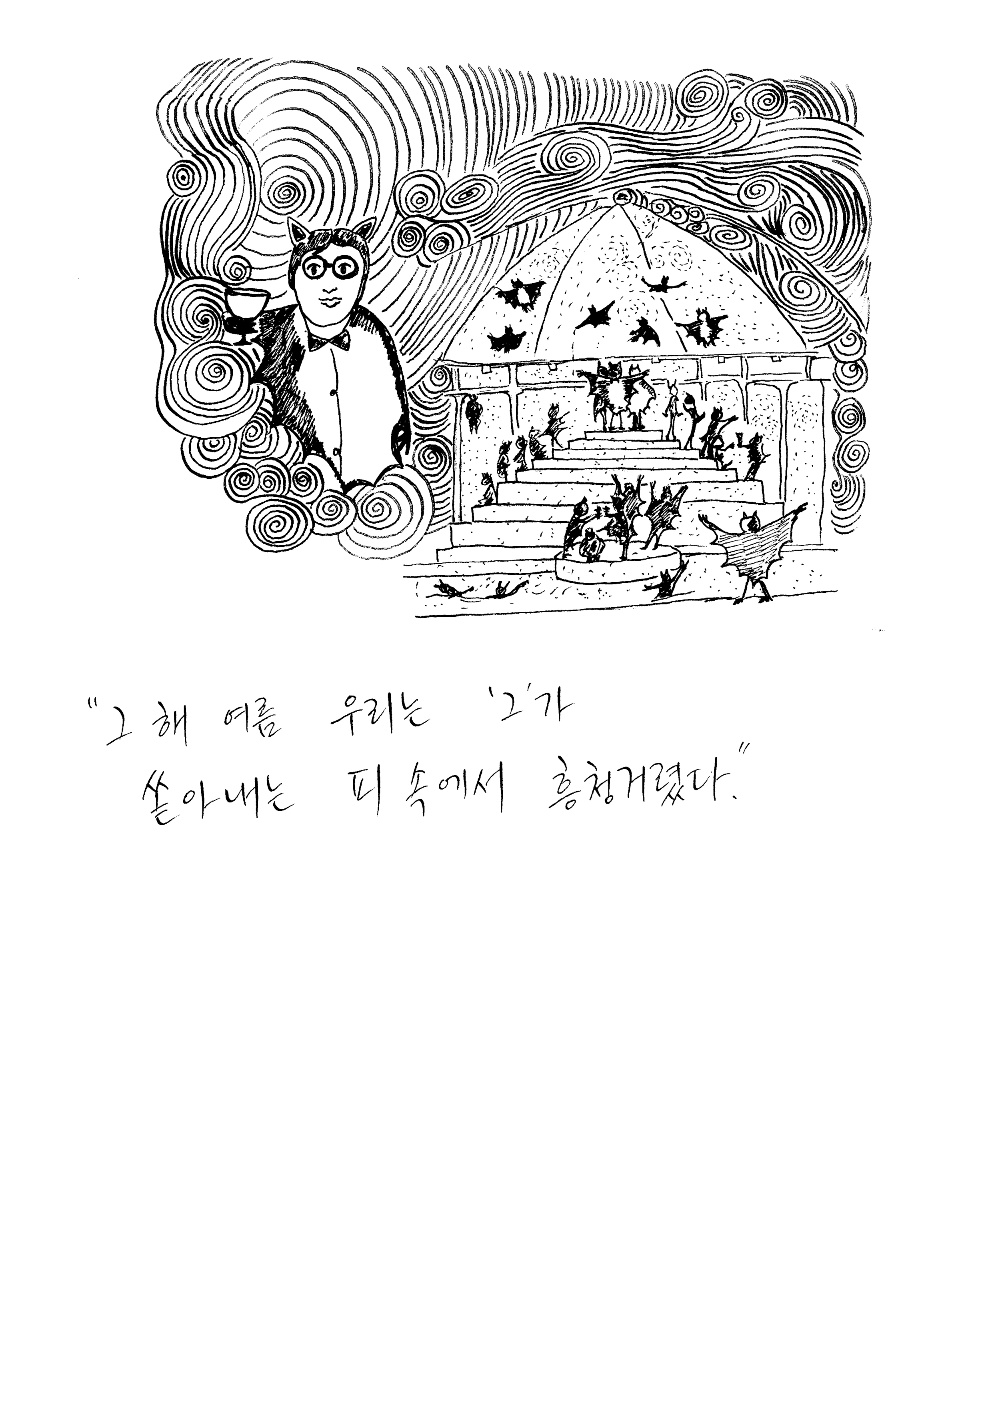 "그 해 여름 우리는 '그'가
쏟아내는 피 속에서 흥청거렸다."